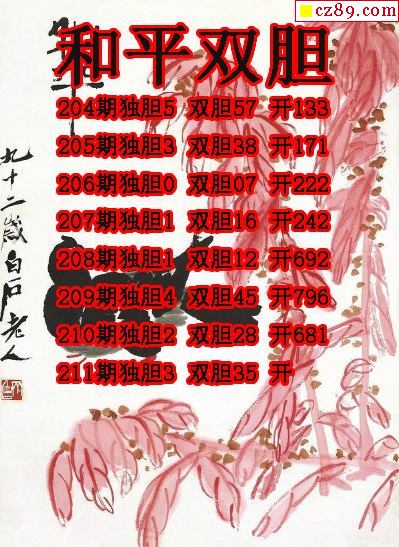 cz89.com
和平双胆
204期独胆5 双胆57 开133
205期独胆3 双胆38 开171
206期独胆0 双胆07 开222
207期独胆1 双胆16 开242
208期独胆1 双胆12 开692
209期独胆4 双胆45 开796
210期独胆2 双胆28 开681
211期独胆3 双胆35 开
九十二岁白石老人